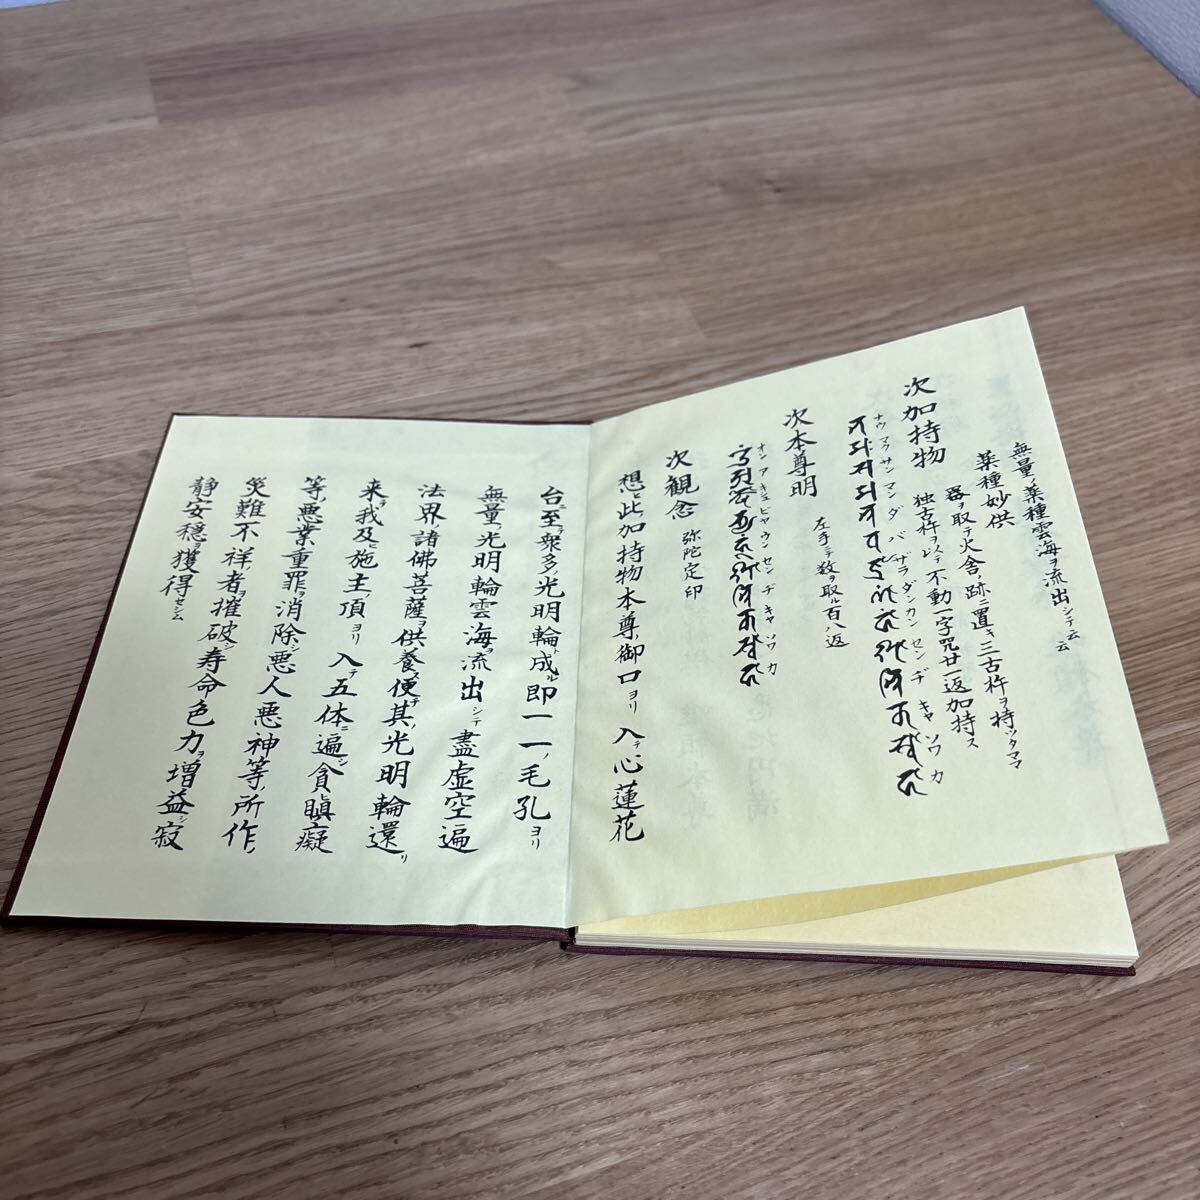 無量ノ薬種雲海ヲ流出シテ云云
薬種妙供
器ヲ取テ火舎ノ跡ニ置キ三古杵ヲ持ツタママ
次加持物
独古杵ヲ以テ不動一字咒廿一返加持ス
ナウマクサンマンダバザラダンカンセンヂキャソワカ
次本尊明
左手ニテ数ヲ取ル百八返
オンアキシュビヤウンセンヂキャソワカ
次観念
弥陀定印
想ヒ此加持物本尊ノ御口ヨリ入テ心蓮花
台ニ至テ衆多ノ光明輪ト成ル即一一ノ毛孔ヨリ
無量ノ光明輪雲海ヲ流出シテ盡虚空遍
法界ノ諸佛菩薩ヲ供養ス便チ其ノ光明輪還リ
来テ我及ヒ施主ノ頂ヨリ入テ五体ニ遍シ貪瞋癡
等ノ悪業重罪ヲ消除シ悪人悪神等ノ所作ノ
災難不祥者ヲ摧破シ寿命色力ヲ増益シ寂
静安穏ヲ獲得セシム